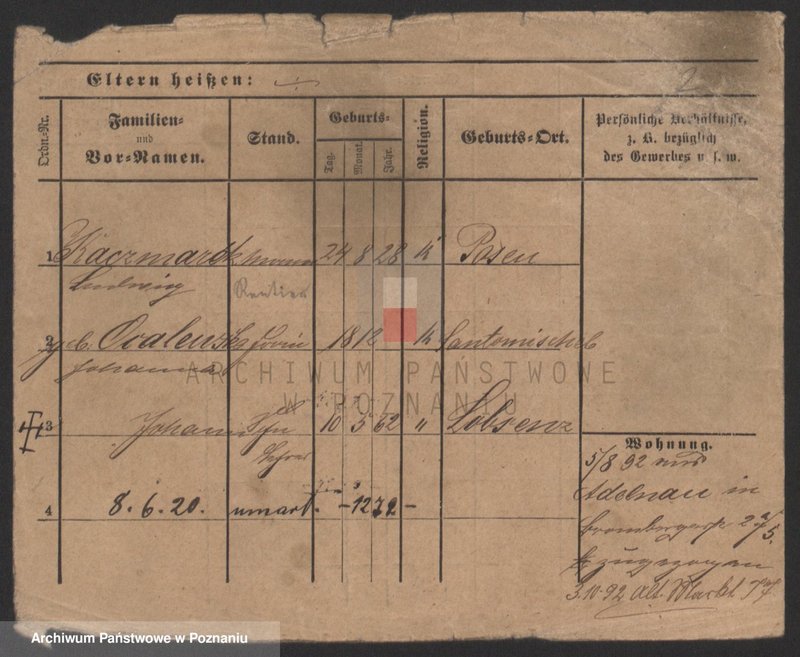 Eltern heißen:
2
Ordn-Nr.
Familien-
und
Vor-Namen.
Stand.
Geburts-
Tag.
Monat.
Jahr.
Religion.
Geburts-Ort.
Persönliche Verhältnisse,
z. B. bezüglich
des Gewerbes u. s. w.
1 Kaczmarek 24 8 28 k Posen
Ludwig Rentier
2 geb. Ovalewska 18 12 k Santomischel
Johanna
ARCHIWUM PAŃSTWOWE
W POZNANIU
3 Johann Sohn 10 5 62 " Lobsenz
Lehrer
4 8.6.20. umarł. -1272-
Wohnung.
5/8 92 aus
Adelnau in
Brombergerstr 2
zugezogen
3.10.92 Alt. Markt
Archiwum Państwowe w Poznaniu